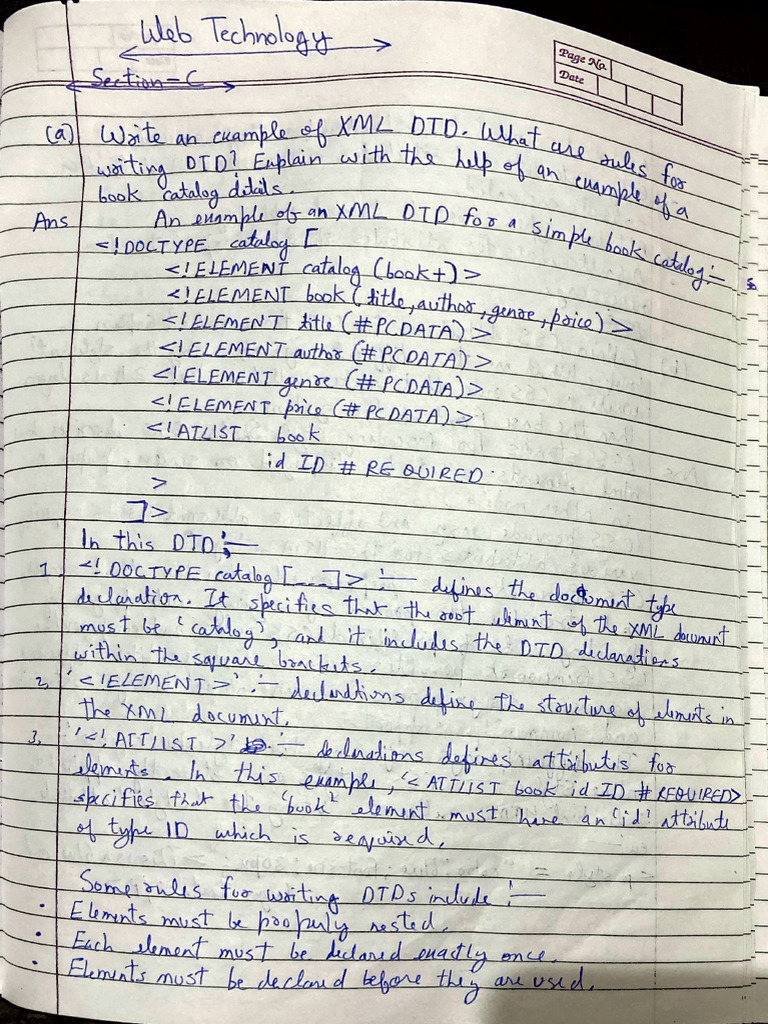 Web Technology
Page No.
Date
Section-C
(a) Write an example of XML DTD. What are rules for
writing DTD? Explain with the help of an example of a
book catalog details.
Ans An example of an XML DTD for a simple book catalog:-
<!DOCTYPE catalog [
<!ELEMENT catalog (book+)>
<!ELEMENT book (title,author,genre,price)>
<!ELEMENT title (#PCDATA)>
<!ELEMENT author (#PCDATA)>
<!ELEMENT genre (#PCDATA)>
<!ELEMENT price (#PCDATA)>
<!ATLIST book
id ID # REQUIRED
>
]>
In this DTD:-
1. <!DOCTYPE catalog [----]> :- defines the document type
declaration. It specifies that the root element of the XML document
must be 'catalog', and it includes the DTD declarations
within the square brackets.
2. '<!ELEMENT>' :- declarations define the structure of elements in
the XML document.
3. '<!ATTLIST>' :- declarations defines attributes for
elements. In this example, '<ATTLIST book id ID # REQUIRED>
specifies that the 'book' element must have an 'id' attribute
of type ID which is required.
Some rules for writing DTDs include :-
• Elements must be properly nested.
• Each element must be declared exactly once.
• Elements must be declared before they are used.